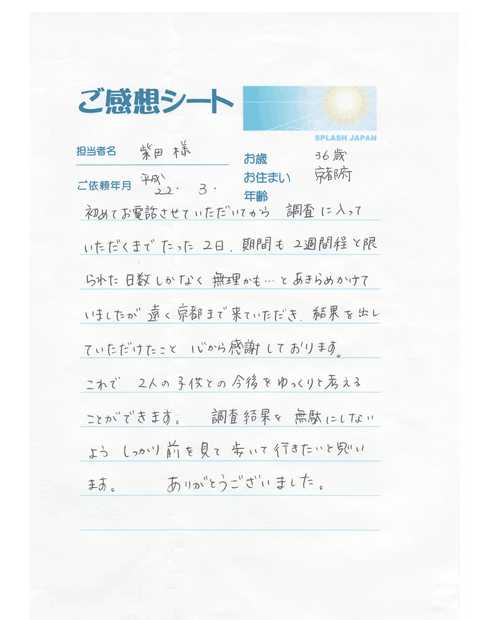 ご感想シート
SPLASH JAPAN
担当者名 柴田 様
お歳 36歳
ご依頼年月 平成22. 3.
お住まい 京都府
年齢
初めてお電話させていただいてから 調査に入って
いただくまで たった2日、期間も2週間程と限
られた日数しかなく 無理かも…とあきらめかけて
いましたが 遠く京都まで来ていただき、結果を出し
ていただけたこと 心から感謝しております。
これで 2人の子供との今後をゆっくりと考える
ことができます。 調査結果を 無駄にしない
よう しっかり前を見て 歩いて行きたいと思い
ます。 ありがとうございました。